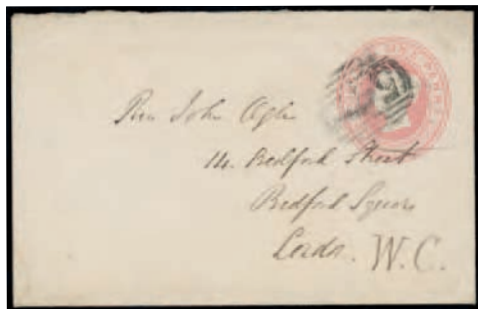 ONE PENNY
Revd John Ogle
14. Bedford Street
Bedford Square
London. W.C.